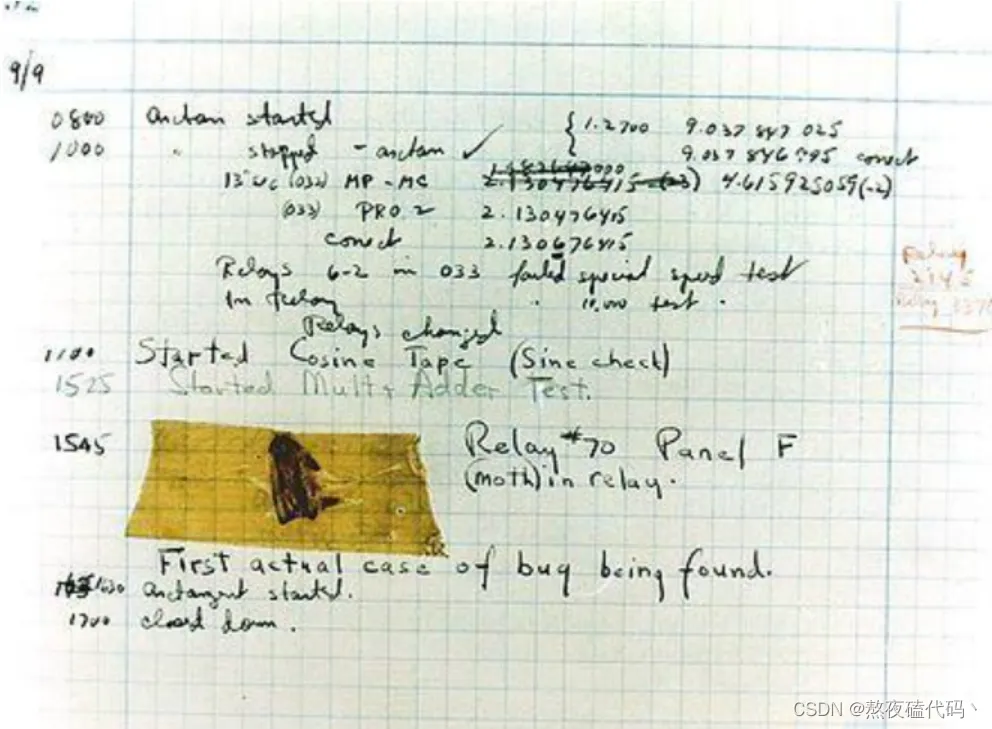 9/9
0800 Antan started
1000 " stopped - antan ✓ { 1.2700 9.037 847 025
9.037 846 795 correct
13"uc (032) MP - MC 2.130476415 (-3) 4.615925059(-2)
(033) PRO 2 2.130476415
correct 2.130676415
Relays 6-2 in 033 failed special speed test
In relay " 10,000 test .
Relay
2145
Relay 3370
Relays changed
1100 Started Cosine Tape (Sine check)
1525 Started Mult + Adder Test.
1545 Relay #70 Panel F
(moth) in relay.
First actual case of bug being found.
1630 antangent started.
1700 closed down .
CSDN @熬夜磕代码丶